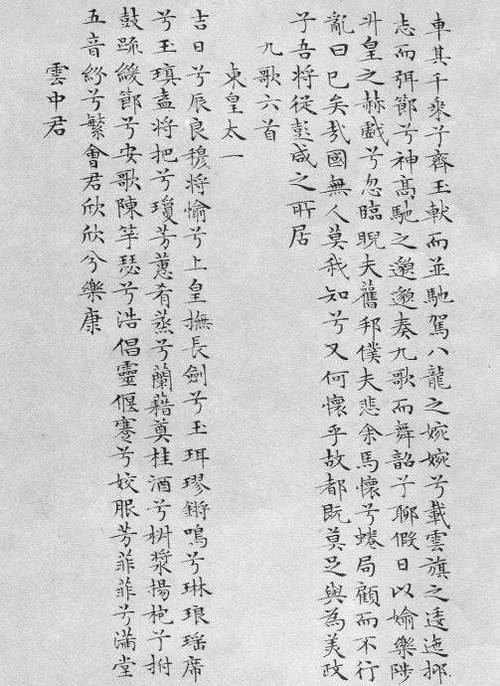 車其千乘兮齊玉軑而並馳駕八龍之婉婉兮載雲旗之逶迤抑
志而弭節兮神髙馳之邈邈奏九歌而舞韶兮聊假日以媮樂陟
升皇之赫戲兮忽臨睨夫舊邦僕夫悲余馬懷兮蜷局顧而不行
亂曰已矣哉國無人莫我知兮又何懷乎故都既莫足與為美政
兮吾將從彭咸之所居
九歌六首
東皇太一
吉日兮辰良穆將愉兮上皇撫長劍兮玉珥璆鏘鳴兮琳琅瑤席
兮玉瑱盍將把兮瓊芳蕙肴蒸兮蘭藉奠桂酒兮椒漿揚枹兮拊
鼓踈緩節兮安歌陳竽瑟兮浩倡靈偃蹇兮姣服芳菲菲兮滿堂
五音紛兮繁會君欣欣兮樂康
雲中君